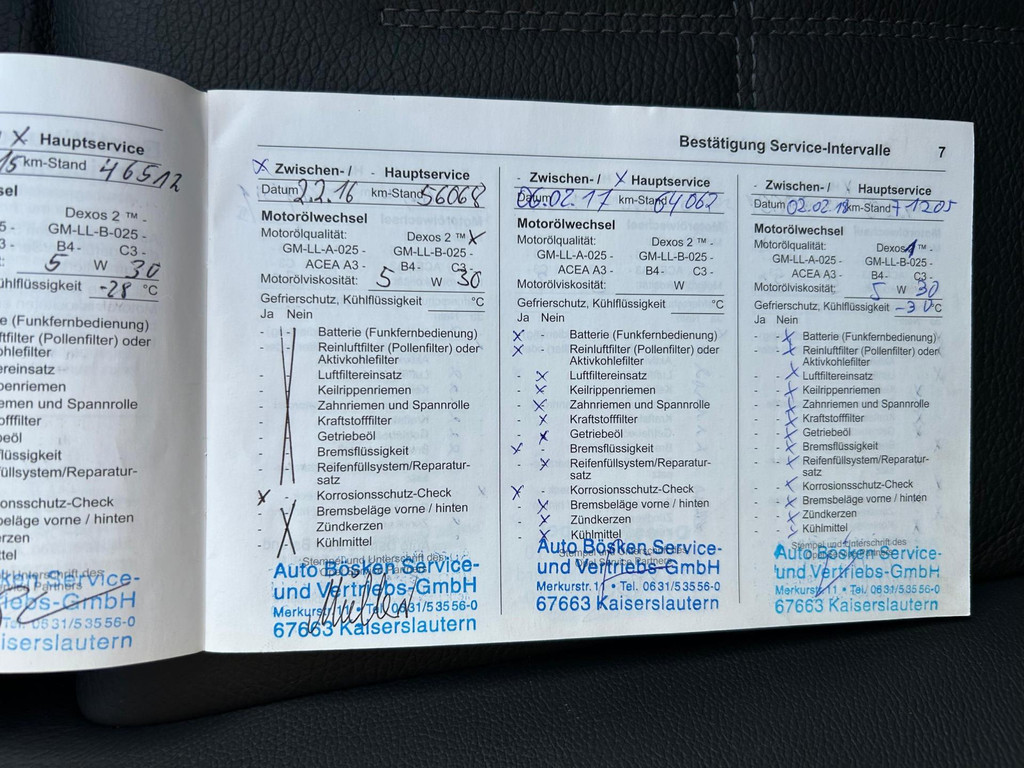 X Hauptservice
15 km-Stand 46512
sel
Dexos 2 ™ -
5 - GM-LL-B-025 -
3 - B4 - C3 -
: 5 W 30
ühlflüssigkeit -28 °C
e (Funkfernbedienung)
ftfilter (Pollenfilter) oder
ohlefilter
ereinsatz
penriemen
emen und Spannrolle
offfilter
beöl
lüssigkeit
üllsystem/Reparatur-
onsschutz-Check
beläge vorne / hinten
erzen
ttel
Service-
iebs-GmbH
Tel. 0631/53556-0
iserslautern
Bestätigung Service-Intervalle 7
X Zwischen- / - Hauptservice
Datum 2.2.16 km-Stand 56068
Motorölwechsel
Motorölqualität: Dexos 2 ™ X
GM-LL-A-025 - GM-LL-B-025 -
ACEA A3 - B4 - C3 -
Motorölviskosität: 5 W 30
Gefrierschutz, Kühlflüssigkeit °C
Ja Nein
Batterie (Funkfernbedienung)
Reinluftfilter (Pollenfilter) oder
Aktivkohlefilter
Luftfiltereinsatz
Keilrippenriemen
Zahnriemen und Spannrolle
Kraftstofffilter
Getriebeöl
Bremsflüssigkeit
Reifenfüllsystem/Reparatur-
satz
X - Korrosionsschutz-Check
Bremsbeläge vorne / hinten
X Zündkerzen
Kühlmittel
Stempel und Unterschrift des
Auto Bösken Service-
und Vertriebs-GmbH
Merkurstr. 11 • Tel. 0631/53556-0
67663 Kaiserslautern
- Zwischen- / X Hauptservice
Datum 06.02.17 km-Stand 64062
Motorölwechsel
Motorölqualität: Dexos 2 ™ -
GM-LL-A-025 - GM-LL-B-025 -
ACEA A3 - B4 - C3 -
Motorölviskosität: W
Gefrierschutz, Kühlflüssigkeit °C
Ja Nein
X - Batterie (Funkfernbedienung)
X - Reinluftfilter (Pollenfilter) oder
Aktivkohlefilter
- X Luftfiltereinsatz
- X Keilrippenriemen
- X Zahnriemen und Spannrolle
- X Kraftstofffilter
- X Getriebeöl
X - Bremsflüssigkeit
- X Reifenfüllsystem/Reparatur-
satz
X - Korrosionsschutz-Check
- X Bremsbeläge vorne / hinten
- X Zündkerzen
- X Kühlmittel
Stempel und Unterschrift des
Opel Service Partners
Auto Bösken Service-
und Vertriebs-GmbH
Merkurstr. 11 • Tel. 0631/53556-0
67663 Kaiserslautern
- Zwischen- / Hauptservice
Datum 02.02.18 km-Stand 71205
Motorölwechsel
Motorölqualität: Dexos 1 ™ -
GM-LL-A-025 - GM-LL-B-025 -
ACEA A3 - B4 - C3 -
Motorölviskosität: 5 W 30
Gefrierschutz, Kühlflüssigkeit -30 °C
Ja Nein
- X Batterie (Funkfernbedienung)
- X Reinluftfilter (Pollenfilter) oder
Aktivkohlefilter
- X Luftfiltereinsatz
- X Keilrippenriemen
- X Zahnriemen und Spannrolle
- X Kraftstofffilter
- X Getriebeöl
- X Bremsflüssigkeit
- X Reifenfüllsystem/Reparatur-
satz
- X Korrosionsschutz-Check
- X Bremsbeläge vorne / hinten
- X Zündkerzen
- X Kühlmittel
Stempel und Unterschrift des
Auto Bösken Service-
und Vertriebs-GmbH
Merkurstr. 11 • Tel. 0631/53556-0
67663 Kaiserslautern